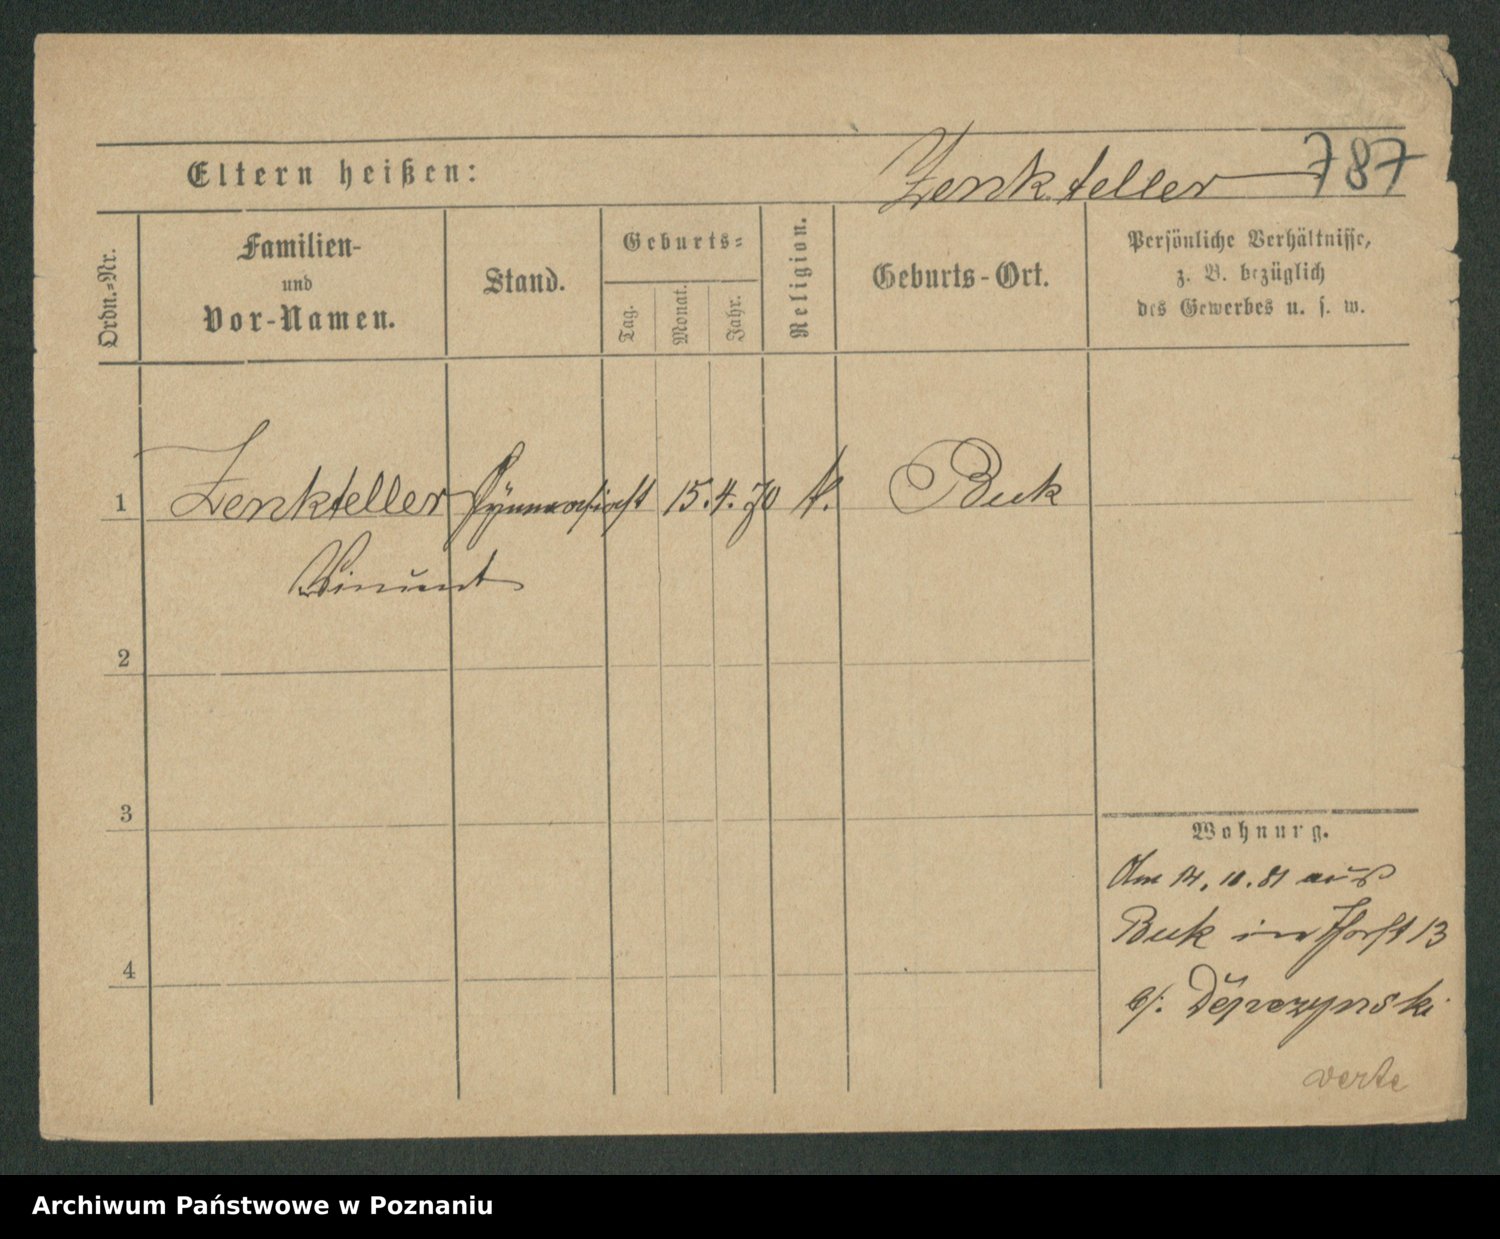 Eltern heißen:
Zenkteller 787
Ordn.-Nr.
Familien-
und
Vor-Namen.
Stand.
Geburts-
Tag.
Monat.
Jahr.
Religion.
Geburts-Ort.
Persönliche Verhältnisse,
z. B. bezüglich
des Gewerbes u. s. w.
1 Zenkteller Gymnasiast 15. 4. 70 k. Buk
Vincent
2
3
4
Wohnung.
Am 14. 10. 81 aus
Buk in Horst 13
b/:
verte
Archiwum Państwowe w Poznaniu